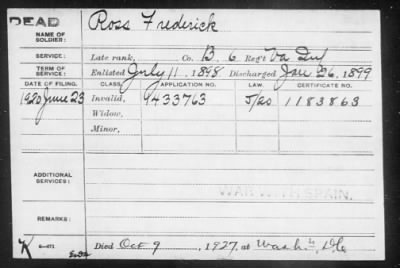 DEAD
NAME OF SOLDIER: Ross Frederick
SERVICE: Late rank, Co. B. 6 Reg't Va Inf
TERM OF SERVICE: Enlisted July 11, 1898 Discharged Jan 26, 1899
DATE OF FILING. CLASS. APPLICATION NO. LAW. CERTIFICATE NO.
1920 June 23 Invalid, 1433763 1183863
Widow,
Minor,
ADDITIONAL SERVICES:
WAR WITH SPAIN.
REMARKS:
K 6-471
Died Oct 9, 1927, at Wash., D.C.